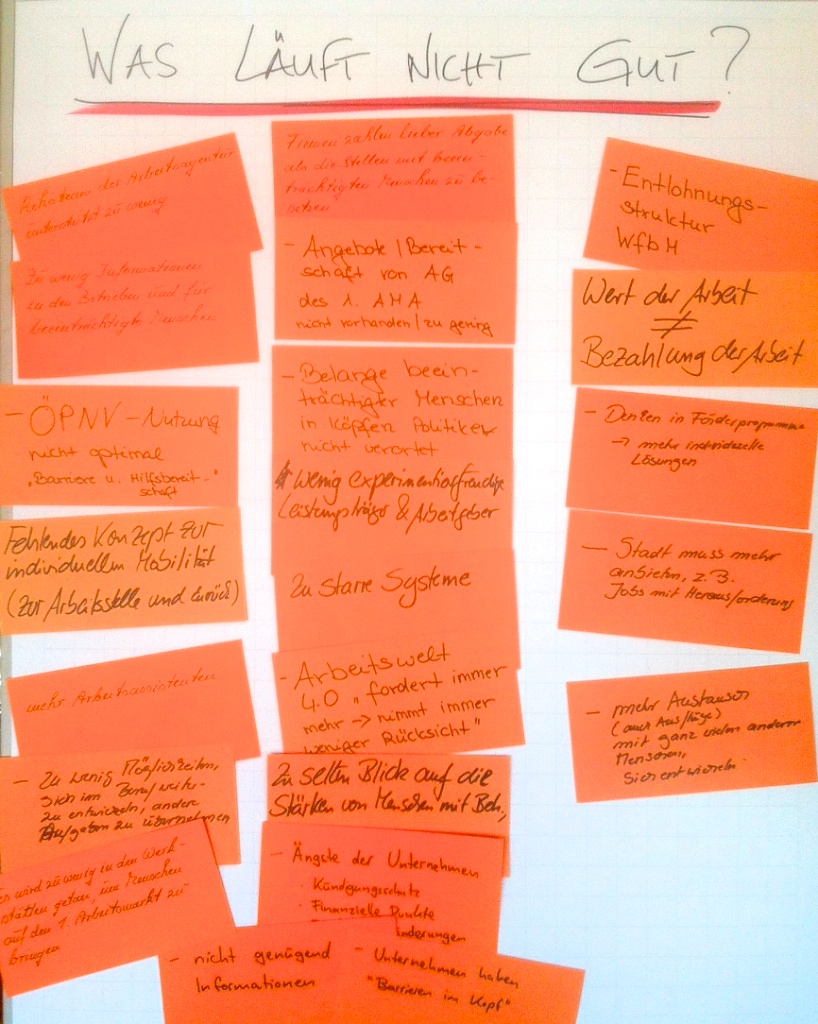 WAS LÄUFT NICHT GUT?
Rehateam der Arbeitsagentur
unterstützt zu wenig
Zu wenig Informationen
in den Betrieben und für
beeinträchtigte Menschen
- ÖPNV - Nutzung
nicht optimal
"Barriere u. Hilfsbereit-"
schaft
Fehlendes Konzept zur
individuellen Mobilität
(zur Arbeitsstelle und zurück)
mehr Arbeitsassistenten
- Zu wenig Möglichkeiten,
sich im Beruf weiter-
zu entwickeln, andere
Aufgaben zu übernehmen
es wird zu wenig in den Werk-
stätten getan, um Menschen
auf den 1. Arbeitsmarkt zu
bringen
Firmen zahlen lieber Abgabe
als die Stellen mit beein-
trächtigten Menschen zu be-
setzen
- Angebote / Bereit-
schaft von AG
des 1. AMA
nicht vorhanden / zu gering
- Belange beein-
trächtiger Menschen
in Köpfen Politiker
nicht verortet
wenig experimentierfreudige
Leistungsträger & Arbeitgeber
Zu starre Systeme
- Arbeitswelt
4.0 "fordert immer
mehr → nimmt immer
weniger Rücksicht"
Zu selten Blick auf die
Stärken von Menschen mit Beh.,
- Ängste der Unternehmen
· Kündigungsschutz
· Finanzielle Punkte
änderungen
- nicht genügend
Informationen
- Unternehmen haben
"Barrieren im Kopf"
- Entlohnungs-
struktur
WfbM
Wert der Arbeit
≠
Bezahlung der Arbeit
- Denken in Förderprogramme
→ mehr individuelle
Lösungen
- Stadt muss mehr
anbieten, z.B.
Jobs mit Herausforderung
- mehr Austausch
(auch Ausflüge)
mit ganz vielen anderen
Menschen,
Sich entwickeln.